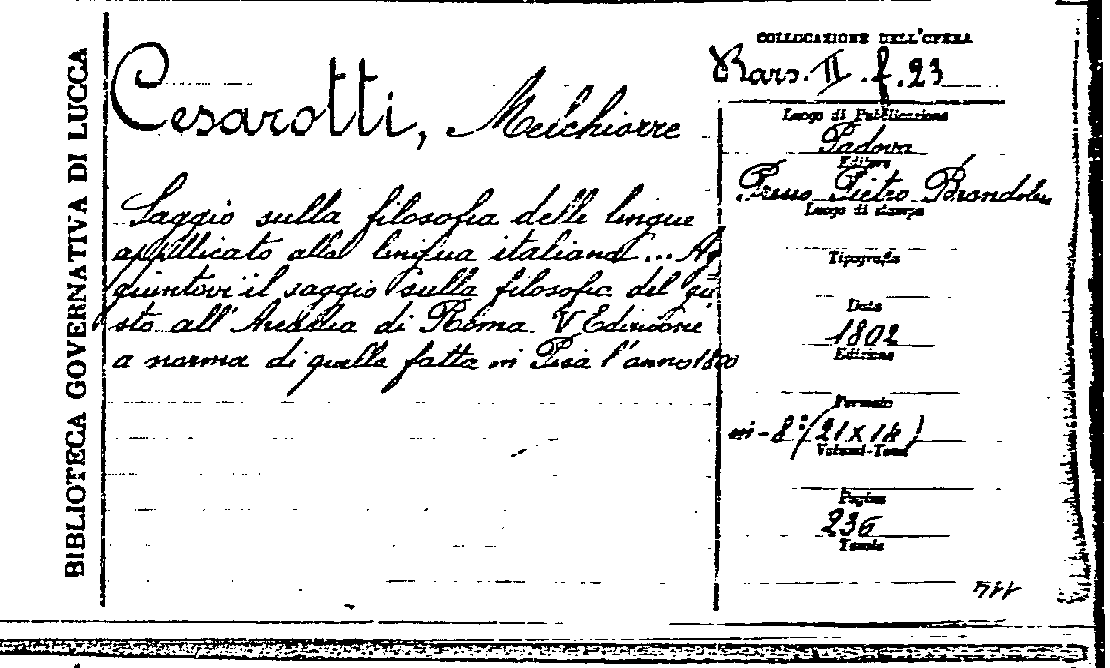 BIBLIOTECA GOVERNATIVA DI LUCCA
Cesarotti, Melchiorre
Saggio sulla filosofia delle lingue
appllicato alla lingua italiana... Ag
giuntovi il saggio sulla filosofia del gu
sto all'Arcadia di Roma V Edizione
a norma di quella fatta in Pisa l'anno 1800
COLLOCAZIONE DELL'OPERA
Rars. II. f. 23
Luogo di Pubblicazione
Padova
Editore
Presso Pietro Brandolese
Luogo di stampa
Tipografia
Data
1802
Edizione
Formato
in-8° (21 x 14)
Volumi-Tomi
Pagine
236
Tavole